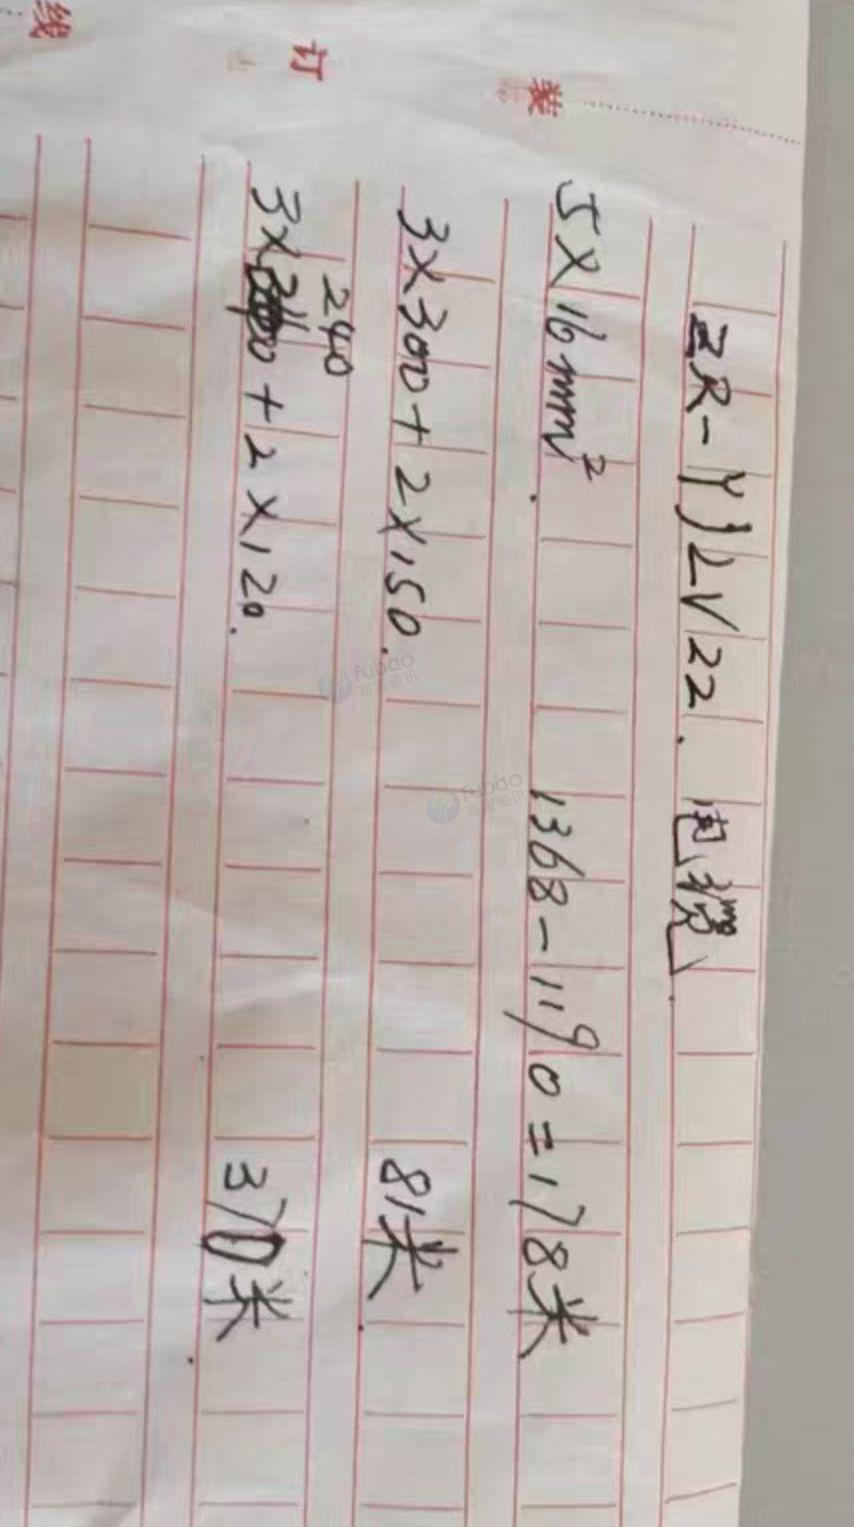 装
订
线
ZR-YJLV22. 电缆.
5X16mm². 1368-1190=178米
3X300+2X150. 81米.
240
3X+2X120. 370米.
fubao
富宝资讯
fubao
富宝资讯